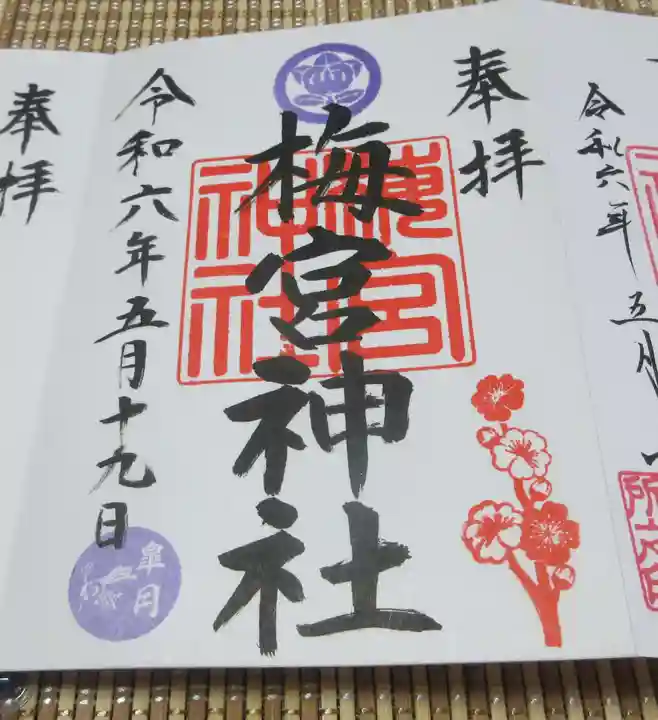 奉拝
令和六年五月
奉拝
梅宮神社
梅宮神社
令和六年五月十九日
皐月
奉拝